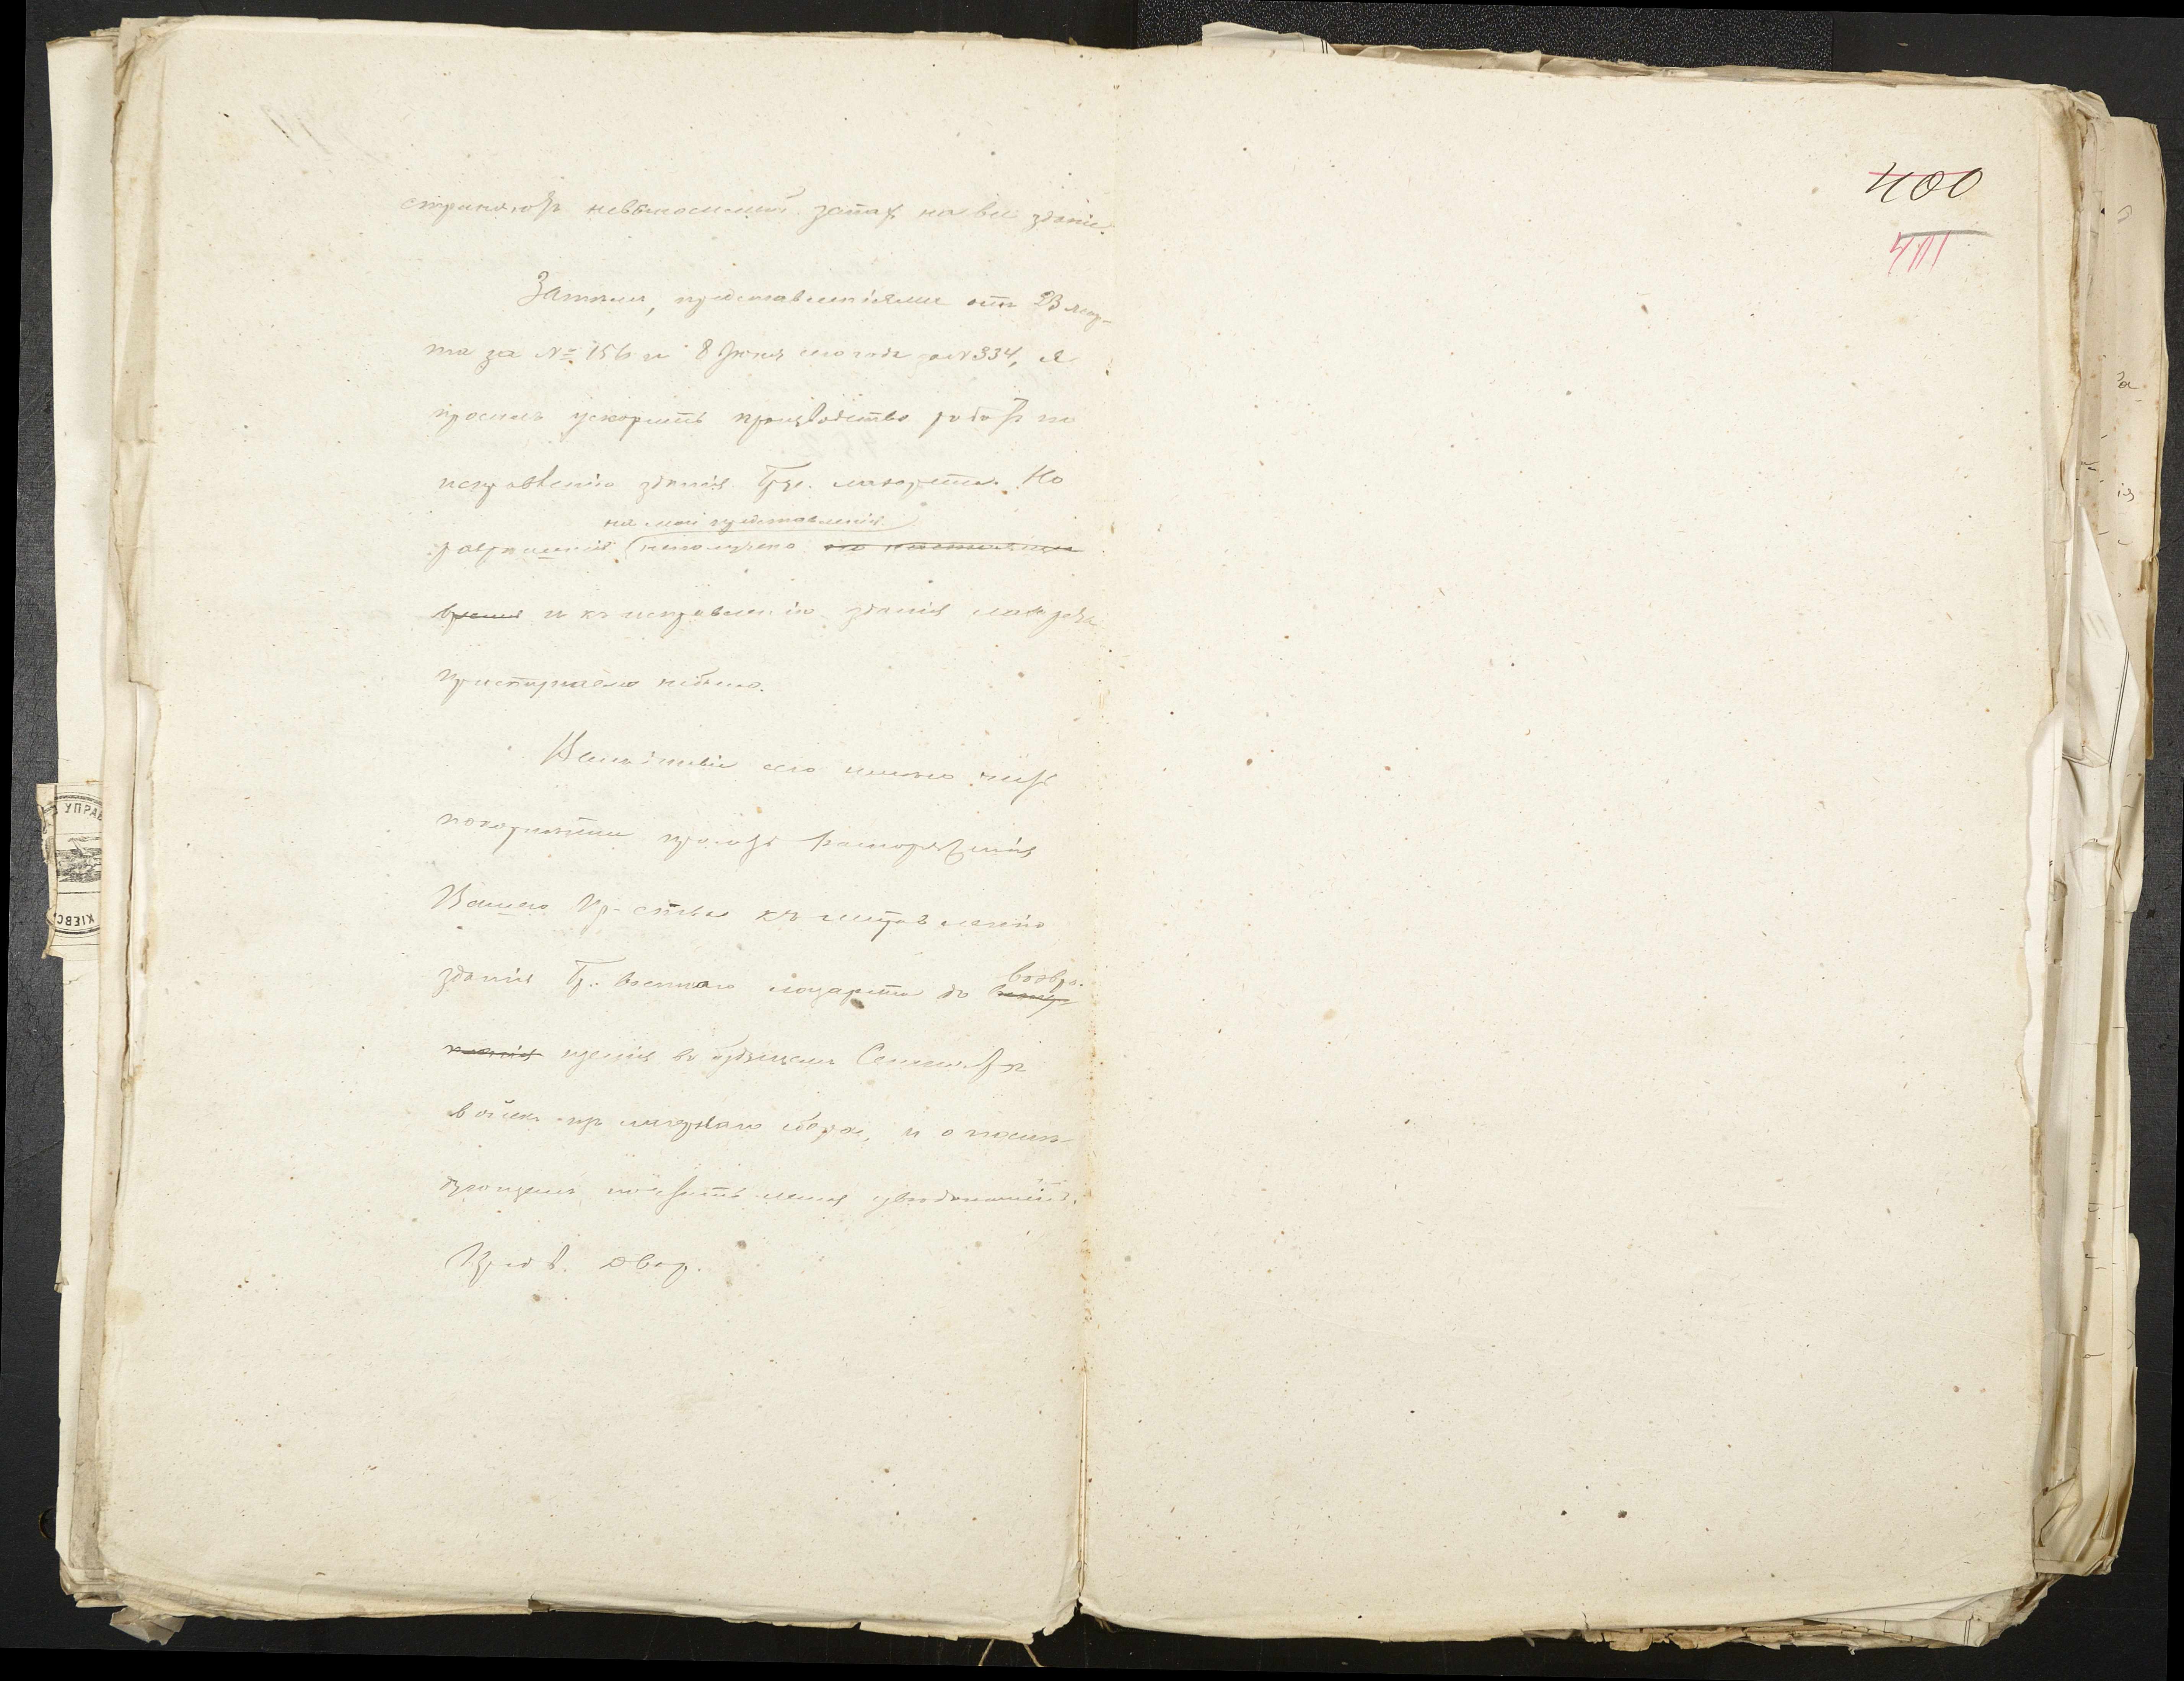 страняютъ невыносимый запах на все зданіе.
Затѣмъ, представленіями отъ 23 мар-
та за № 156 и 8 Іюня сего года за № 334, я
просилъ ускорить производство работъ по
исправленію зданія Гр. лазарета. Но
на мои представленія
разрѣшенія неполучено по настоящее
время и къ исправленію зданія лазарета
приступаемо небыло.
Вслѣдствіе сего имѣю честь
покорнѣйше просить распоряженія
Вашего Пр-ства къ исправленію
зданія Гр. военнаго лазарета до
возвра-
щенія въ будущемъ Сентябрѣ
войскъ изъ лагернаго сбора, и о послѣ-
дующемъ почтить меня увѣдомленіемъ.
Предв. Двор.
400
411
УПРАВ
КІЕВС